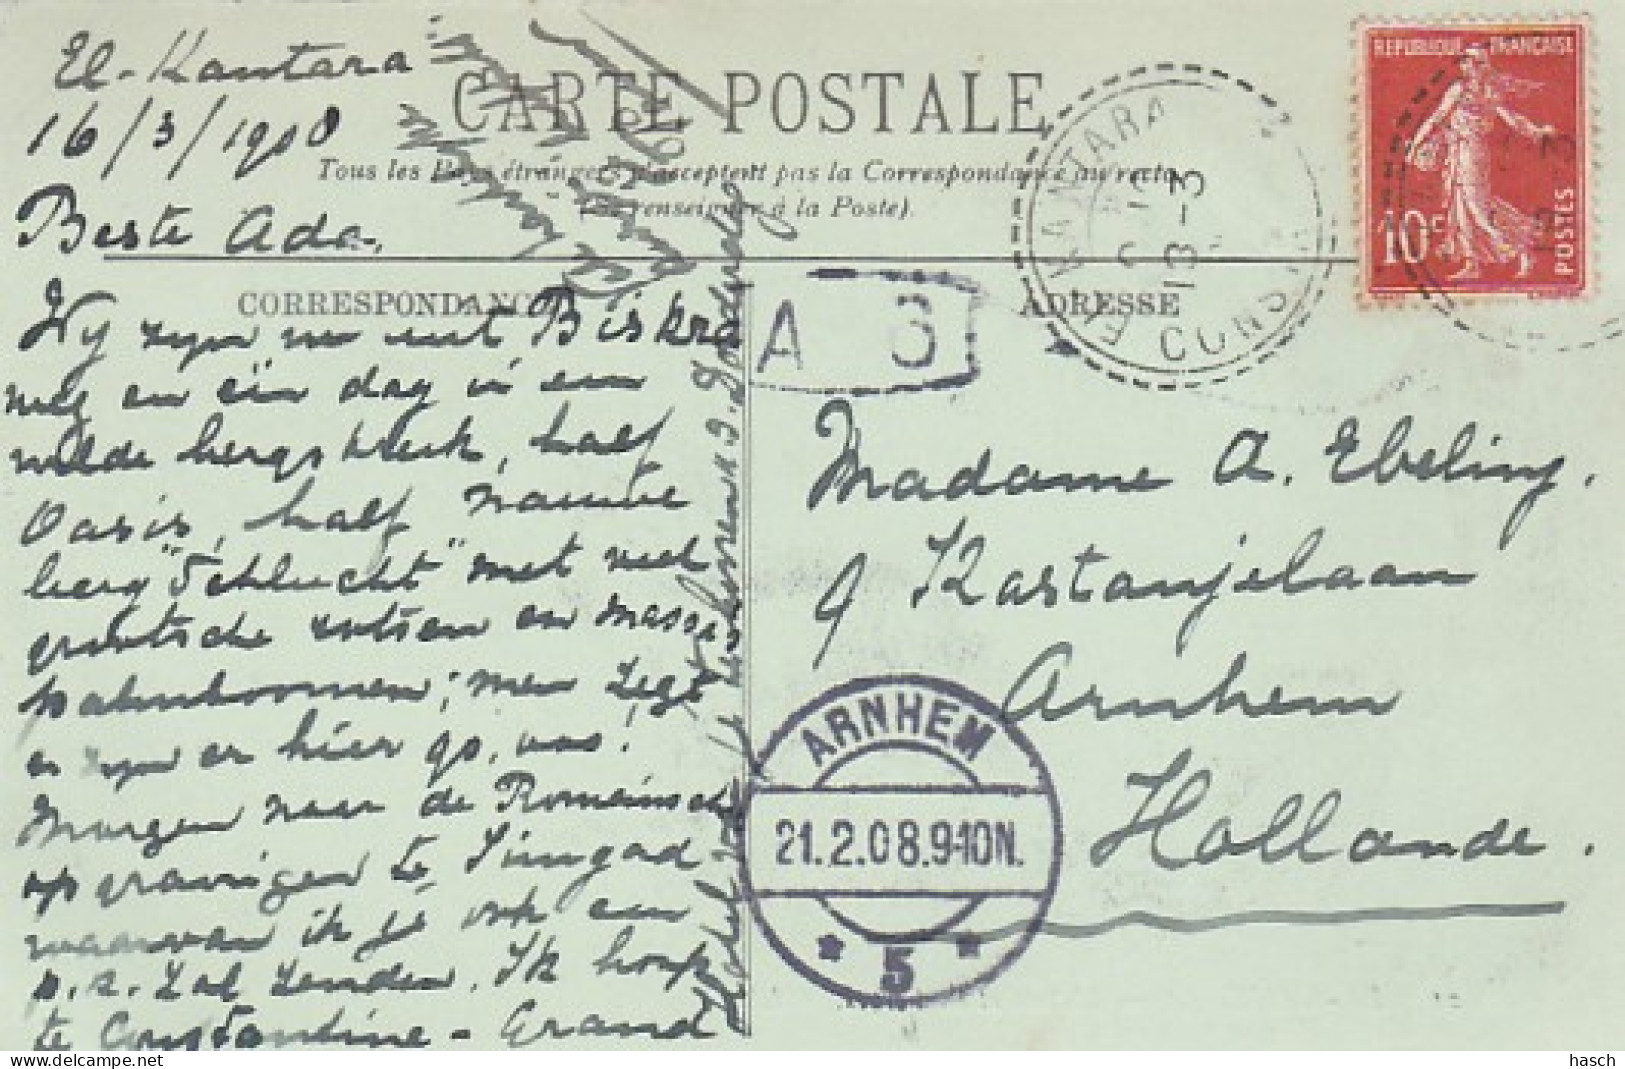 El-Kantara
16/3/1908
CARTE POSTALE
Tous les Pays étrangers n'acceptent pas la Correspondance au recto
(Se renseigner à la Poste).
Beste Ada,
CORRESPONDANCE
ADRESSE
REPUBLIQUE FRANÇAISE
10c
POSTES
EL KANTARA
13-3
CONS
A 3
Wy zyn nu uit Biskra
weg en één dag in een
wilde bergstreek, half
Oasis, half nauwe
berg "Schlucht" met veel
grootsche rotsen en massas
palmboomen; men zegt
er zyn er hier 90,000!
Morgen naar de Romeinsche
opgravingen te Timgad
waarvan ik je ook een
p.k. zal zenden. Ik hoop
te Constantine - Grand
Hotel van je te hooren
Madame A. Ebeling.
9 Kastanjelaan
Arnhem
Hollande.
ARNHEM
21.2.08.9-10N.
* 5 *
hasch